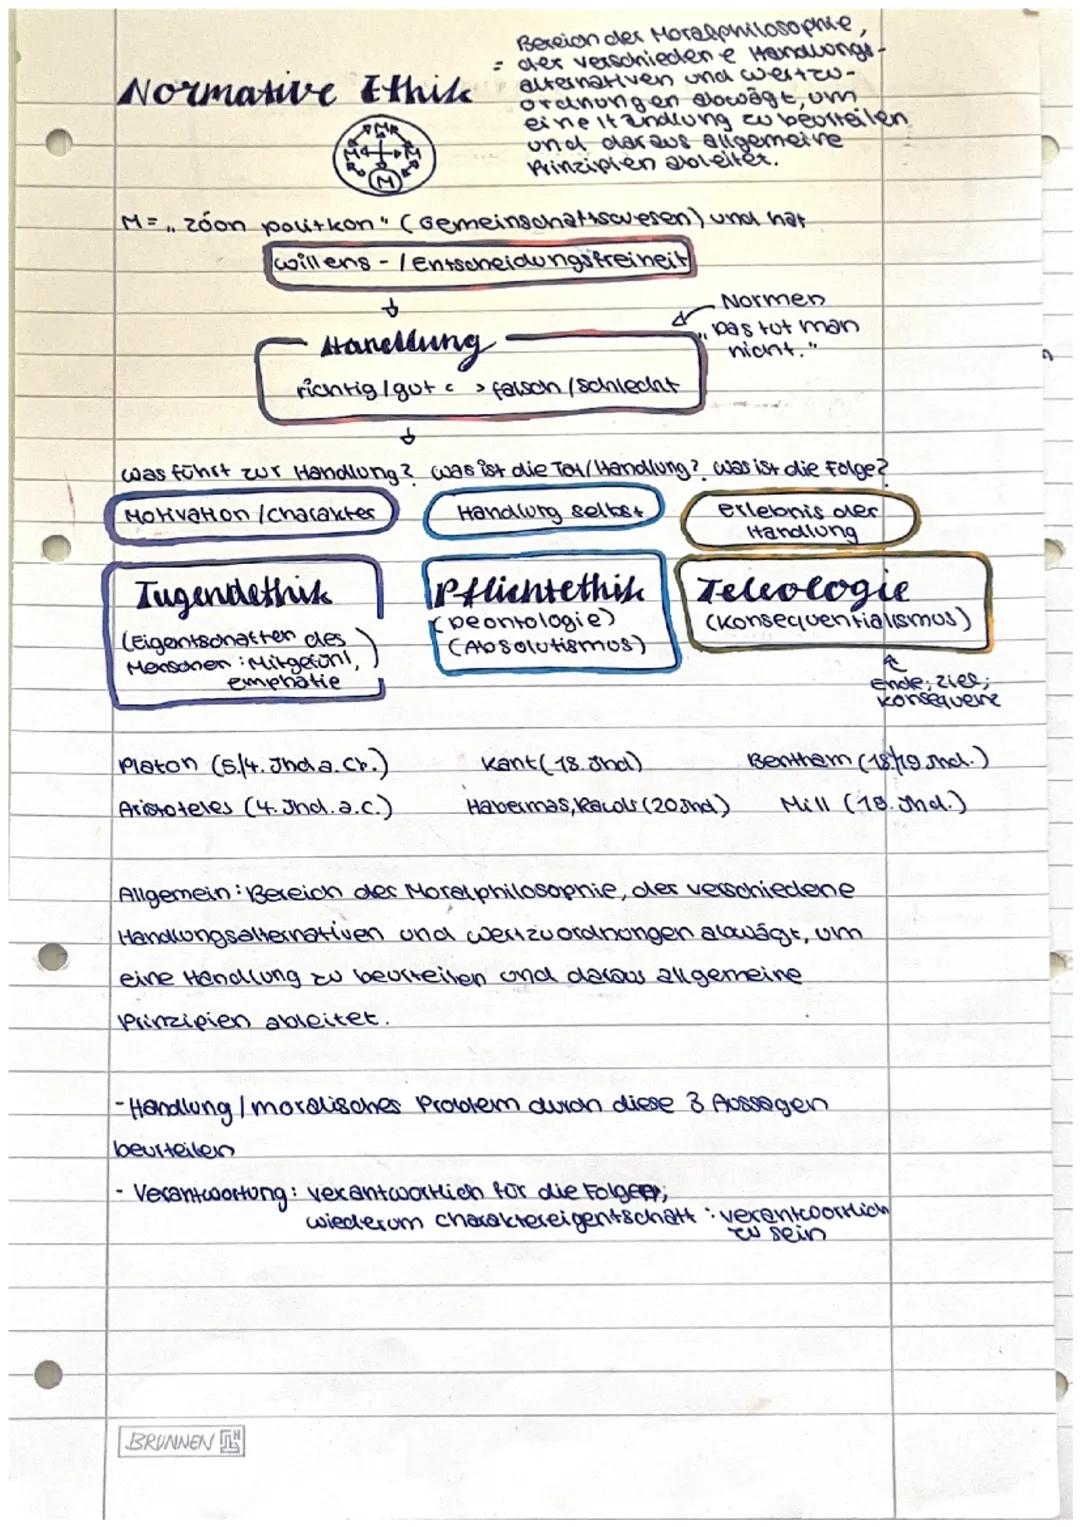 Bereich der Moralphilosophie,
= der verschiedene Handlungs-
alternativen und wertzu-
ordnungen abwägt, um
eine Handlung zu beurteilen
und daraus allgemeine
Prinzipien ableitet.
Normative Ethik
M
M M
M
M = „zóon politkon" (Gemeinschaftswesen) und hat
willens - / Entscheidungsfreiheit
Normen
„Das tut man
nicht."
Handlung
richtig / gut < > falsch / schlecht
was führt zur Handlung? was ist die Tat/Handlung? was ist die Folge?
Motivation / Charakter
Handlung selbst
erlebnis der
Handlung
Tugendethik
(Eigentschaften des
Menschen: Mitgefühl,
emphatie
Pflichtethik
(Deontologie)
(Absolutismus)
Teleologie
(Konsequentialismus)
Ende; Ziel;
Konsequenz
Platon (5./4. Jhd a. Cr.)
Kant (18. Jhd)
Bentham (18/19 Jhd.)
Aristoteles (4. Jhd. a.c.)
Habermas, Rawls (20 Jhd)
Mill (19. Jhd.)
Allgemein: Bereich der Moralphilosophie, der verschiedene
Handlungsalternativen und wertzuordnungen abwägt, um
eine Handlung zu beurteilen und daraus allgemeine
Prinzipien ableitet.
- Handlung / moralisches Problem durch diese 3 Aussagen
beurteilen
- Verantwortung: verantwortlich für die Folgen;
wiederum charaktereigentschaft: verantwortlich
zu sein
BRUNNEN